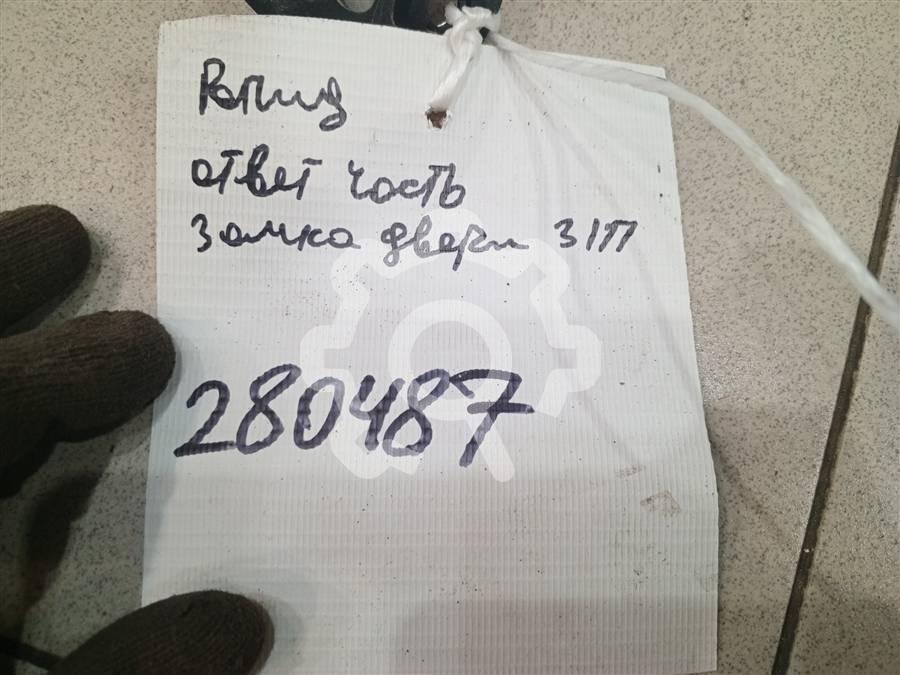 Рапид
ответ часть
замка двери З/П
280487